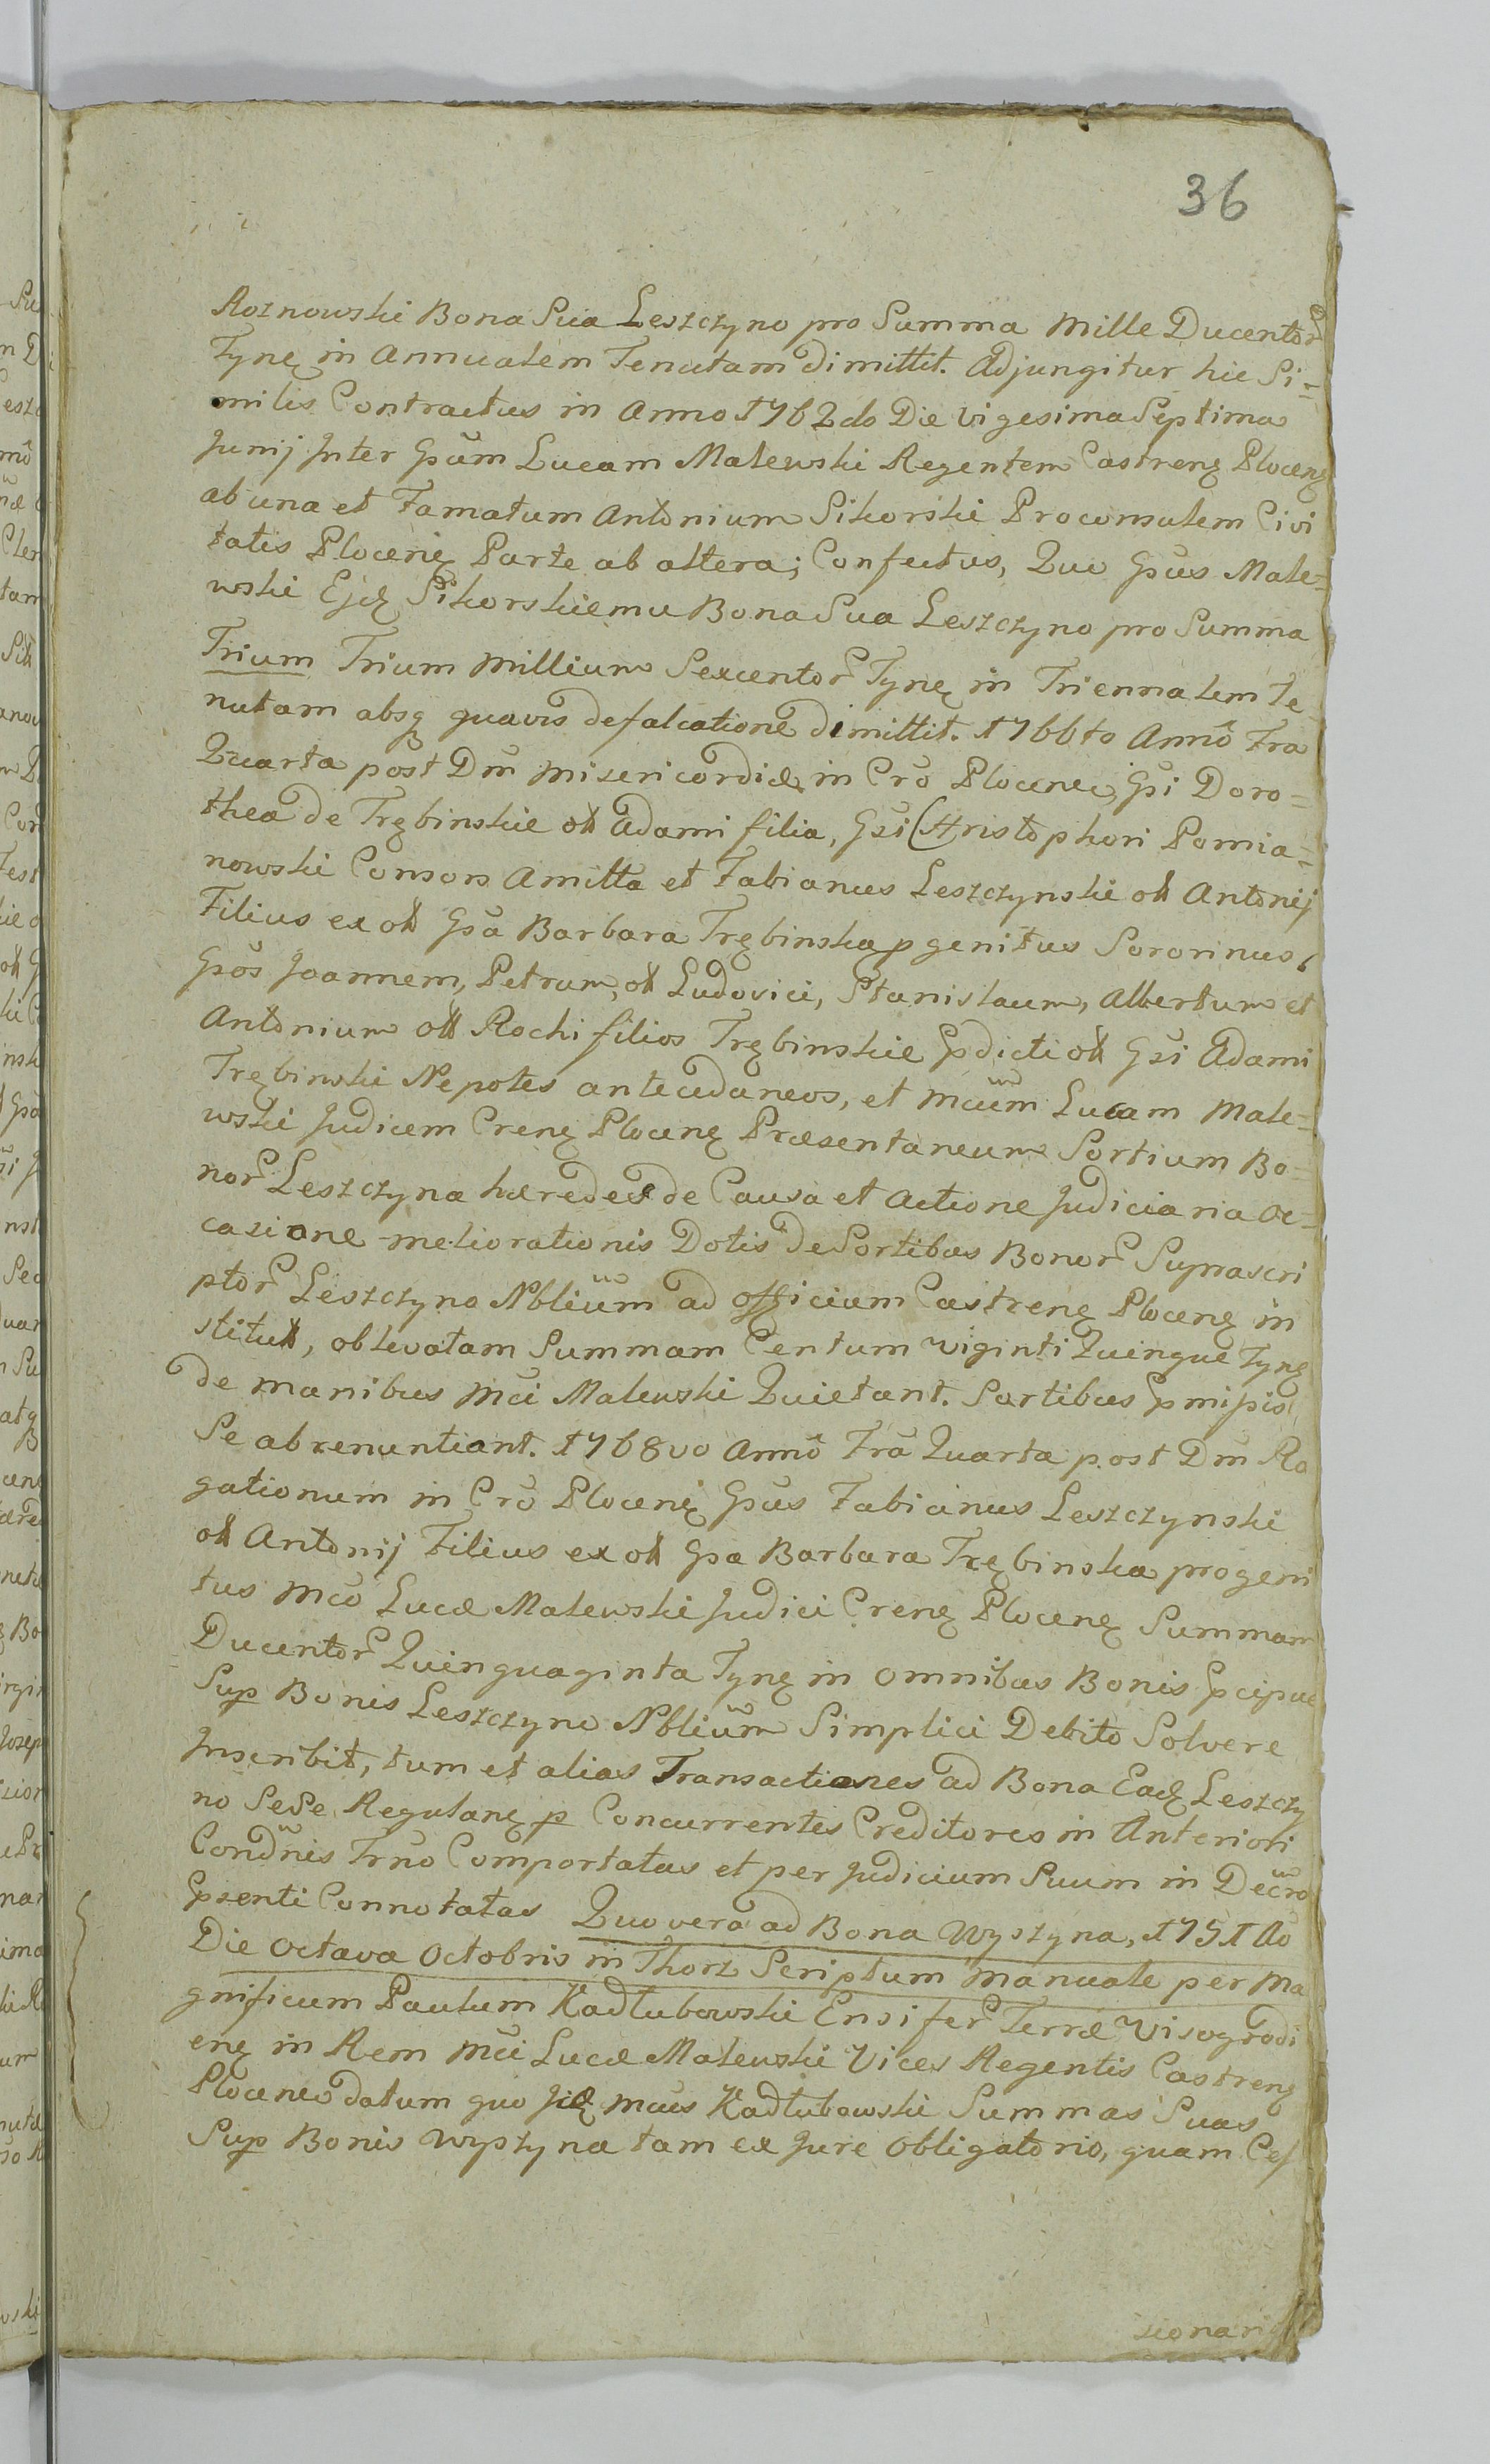 36
Roznowski Bona Sua Leszczyno pro Summa Mille Ducentor
Tyne in Annualem Tenutam dimittit. Adjungitur hic Si=
milis Contractus in Anno 1762do Die Vigesima Septima
Junij Inter Gsum Lucam Malewski Regentem Castrenę Plocenę
ab una et Famatum Antonium Sikorski Proconsulem Civi
tatis Plocenę Parte ab altera; Confectus, Quo Gsus Male=
wski Ejdę Sikorskiemu Bona Sua Leszczyno pro Summa
Trium Trium Millium Sexcentor Tynę in Triennalem Te
nutam absq quavis defalcatione dimittit. 1766to Anno Fra
Quarta post Dm Misericordiæ in Cro Plocenę, Gsi Doro=
thea de Trębinskie ol Adami filia, Gsi Christophori Pomia=
nowski Consors Amitta et Fabianus Leszczynski ol Antonij
Filius ex ol Gsa Barbara Trębinska pgenitus Sororinus,
Gsos Joannem, Petrum, ol Ludovici, Stanislaum, Albertum et
Antonium oll Rochi filios Trębinskie pdicti ol Gsi Adami
Trębinski Nepotes antecedaneos, et Mcum Lucam Male=
wski Judicem Crenę Plocenę Præsentaneum Sortium Bo=
nor Leszczyna hæredes de Causa et Actione Judiciaria oc=
casione meliorationis Dotis de Sortibus Bonor Suprascri
ptor Leszczyno Nblium ad officium Castrenę Plocenę in
stitut, oblevatam Summam Centum viginti Quinque Tynę
de manibus Mci Malewski Quietant. Sortibus pmissis
Se abrenuntiant. 1768vo Anno Fra Quarta post Dm Ro
gationum in Cro Plocenę Gsus Fabianus Leszczynski
ol Antonij Filius ex ol Gsa Barbara Trębinska progeni
tus Mco Lucæ Malewski Judici Crenę Plocenę Summam
Ducentor Quinquaginta Tynę in omnibus Bonis pcipue
Sup Bonis Leszczyno Nblium Simplici Debito Solvere
Inscribit, tum et alias Transactiones ad Bona Eadę Leszczy
no Sese Regulanę p Concurrentes Creditores in Anteriori
Condnis Trno Comportatas et per Judicium Suum in Decro
psenti Connotatas Quo vero ad Bona Wyszyna, 1751 Ao
Die octava Octobris in Thorz Scriptum manuale per Ma
gnificum Paulum Kadlubowski Ensifer Terræ Visogrodi
enę in Rem Mci Lucæ Malewski Vices Regentis Castrenę
Plocenę datum quo Jdę Mcus Kadlubowski Summas Suas
Sup Bonis Wyszyna tam ex Jure obligatorio, quam Ces
sionari